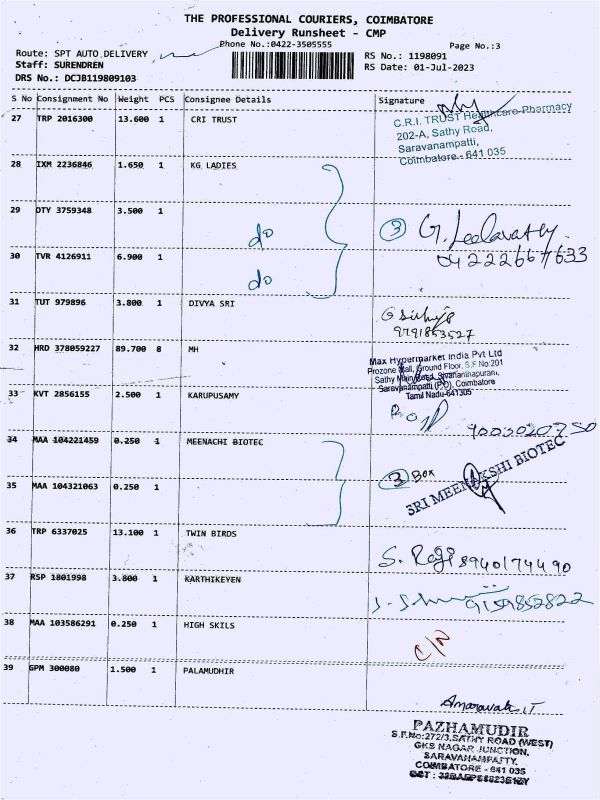 THE PROFESSIONAL COURIERS, COIMBATORE
Delivery Runsheet - CMP
Phone No.:0422-3505555
Page No.:3
Route: SPT AUTO DELIVERY
RS No.: 1198091
Staff: SURENDREN
RS Date: 01-Jul-2023
DRS No.: DCJB119809103
S No Consignment No Weight PCS Consignee Details Signature
27 TRP 2016300 13.600 1 CRI TRUST
C.R.I. TRUST Healthcare Pharmacy
202-A, Sathy Road,
Saravanampatti,
Coimbatore - 641 035
28 IXM 2236846 1.650 1 KG LADIES
29 OTY 3759348 3.500 1
do
3 G. Leelavathy
04222667633
30 TVR 4126911 6.900 1
do
31 TUT 979896 3.800 1 DIVYA SRI
9791853527
32 HRD 378059227 89.700 8 MH
Max Hypermarket India Pvt Ltd
Prozone Mall, Ground Floor, S.F No:201
Sathy Main Road, Sivananthapuram,
Saravanampatti (P.O), Coimbatore
Tamil Nadu-641305
33 KVT 2856155 2.500 1 KARUPUSAMY
9003020750
34 MAA 104221459 0.250 1 MEENACHI BIOTEC
3 Box
SRI MEENAKSHI BIOTEC
35 MAA 104321063 0.250 1
36 TRP 6337025 13.100 1 TWIN BIRDS
S. Raji 8940174490
37 RSP 1801998 3.800 1 KARTHIKEYEN
9159852822
38 MAA 103586291 0.250 1 HIGH SKILS
C/N
39 GPM 300080 1.500 1 PALAMUDHIR
PAZHAMUDIR
S.F.No:272/3,SATHY ROAD (WEST)
GKS NAGAR JUNCTION,
SARAVANAMPATTY,
COIMBATORE - 641 035